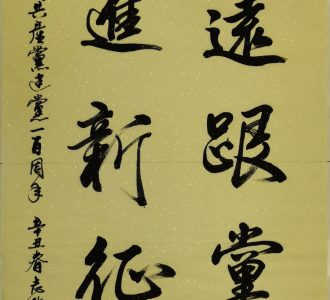 遠跟黨
進新征
共产黨建黨一百周年 辛丑春志